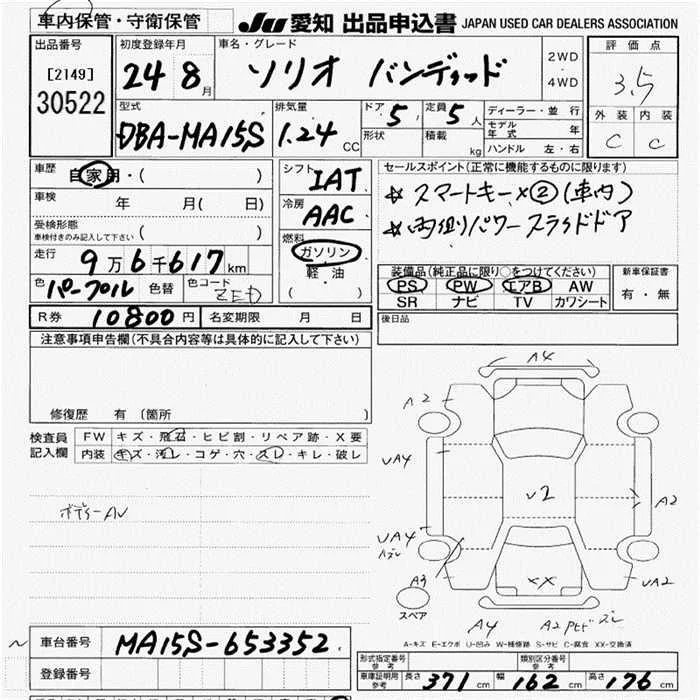 車内保管・守衛保管
JU 愛知 出品申込書 JAPAN USED CAR DEALERS ASSOCIATION
出品番号 [2149] 30522
初度登録年月 24 8月
車名・グレード ソリオ バンディット
2WD・4WD
評価点 3.5
外装 C 内装 C
型式 DBA-MA15S
排気量 1.24 CC
ドア 5 定員 5人
形状 積載 kg
ディーラー・並行
モデル年式 年
ハンドル 左・右
車歴 自家用・( )
車検 年 月( 日)
受検形態 ( )
車検付きのみ記入して下さい
走行 9万6千617km
色 パープル 色替 色コード ZED
シフト IAT
冷房 AAC
燃料 ガソリン
軽油
( )
セールスポイント(正常に機能するものに限ります)
☆ スマートキー×②(車内)
☆ 両側パワースライドドア
装備品(純正品に限り○をつけてください)
PS PW エアB AW
SR ナビ TV カワシート
新車保証書
有・無
R券 10800円 名変期限 月 日
後日品
注意事項申告欄(不具合内容等は具体的に記入して下さい)
修復歴 有 (箇所 )
検査員記入欄 FW キズ・飛石・ヒビ割・リペア跡・X要
内装 キズ・汚レ・コゲ・穴・スレ・キレ・破レ
ボデーAU
A4
A2
UA4
U2
A2
UA4
A3
XX
UA2
スペア
A4
A2
A-キズ E-エクボ U-凹み W-補修跡 S-サビ C-腐食 XX-交換済
車台番号 MA15S-653352
登録番号
形式指定番号 参考 類別区分番号 参考
車庫証明用参考 長さ 371cm 幅 162cm 高さ 176cm